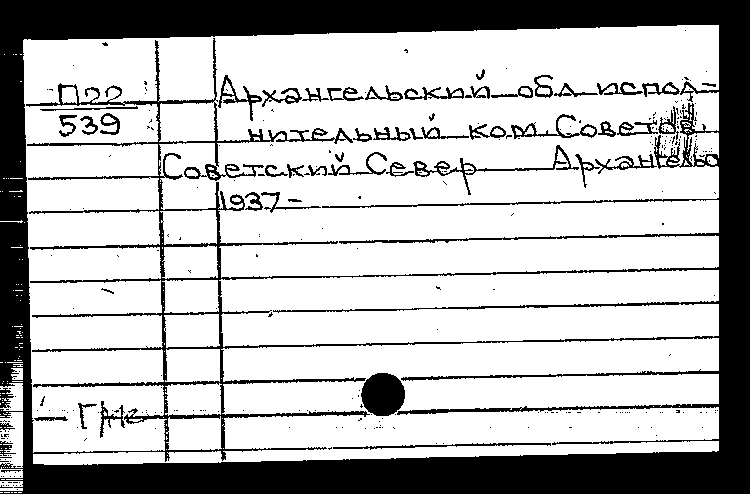 П22
539
Архангельский обл испол=
нительный ком. Советов.
Советский Север Архангельс
1937-